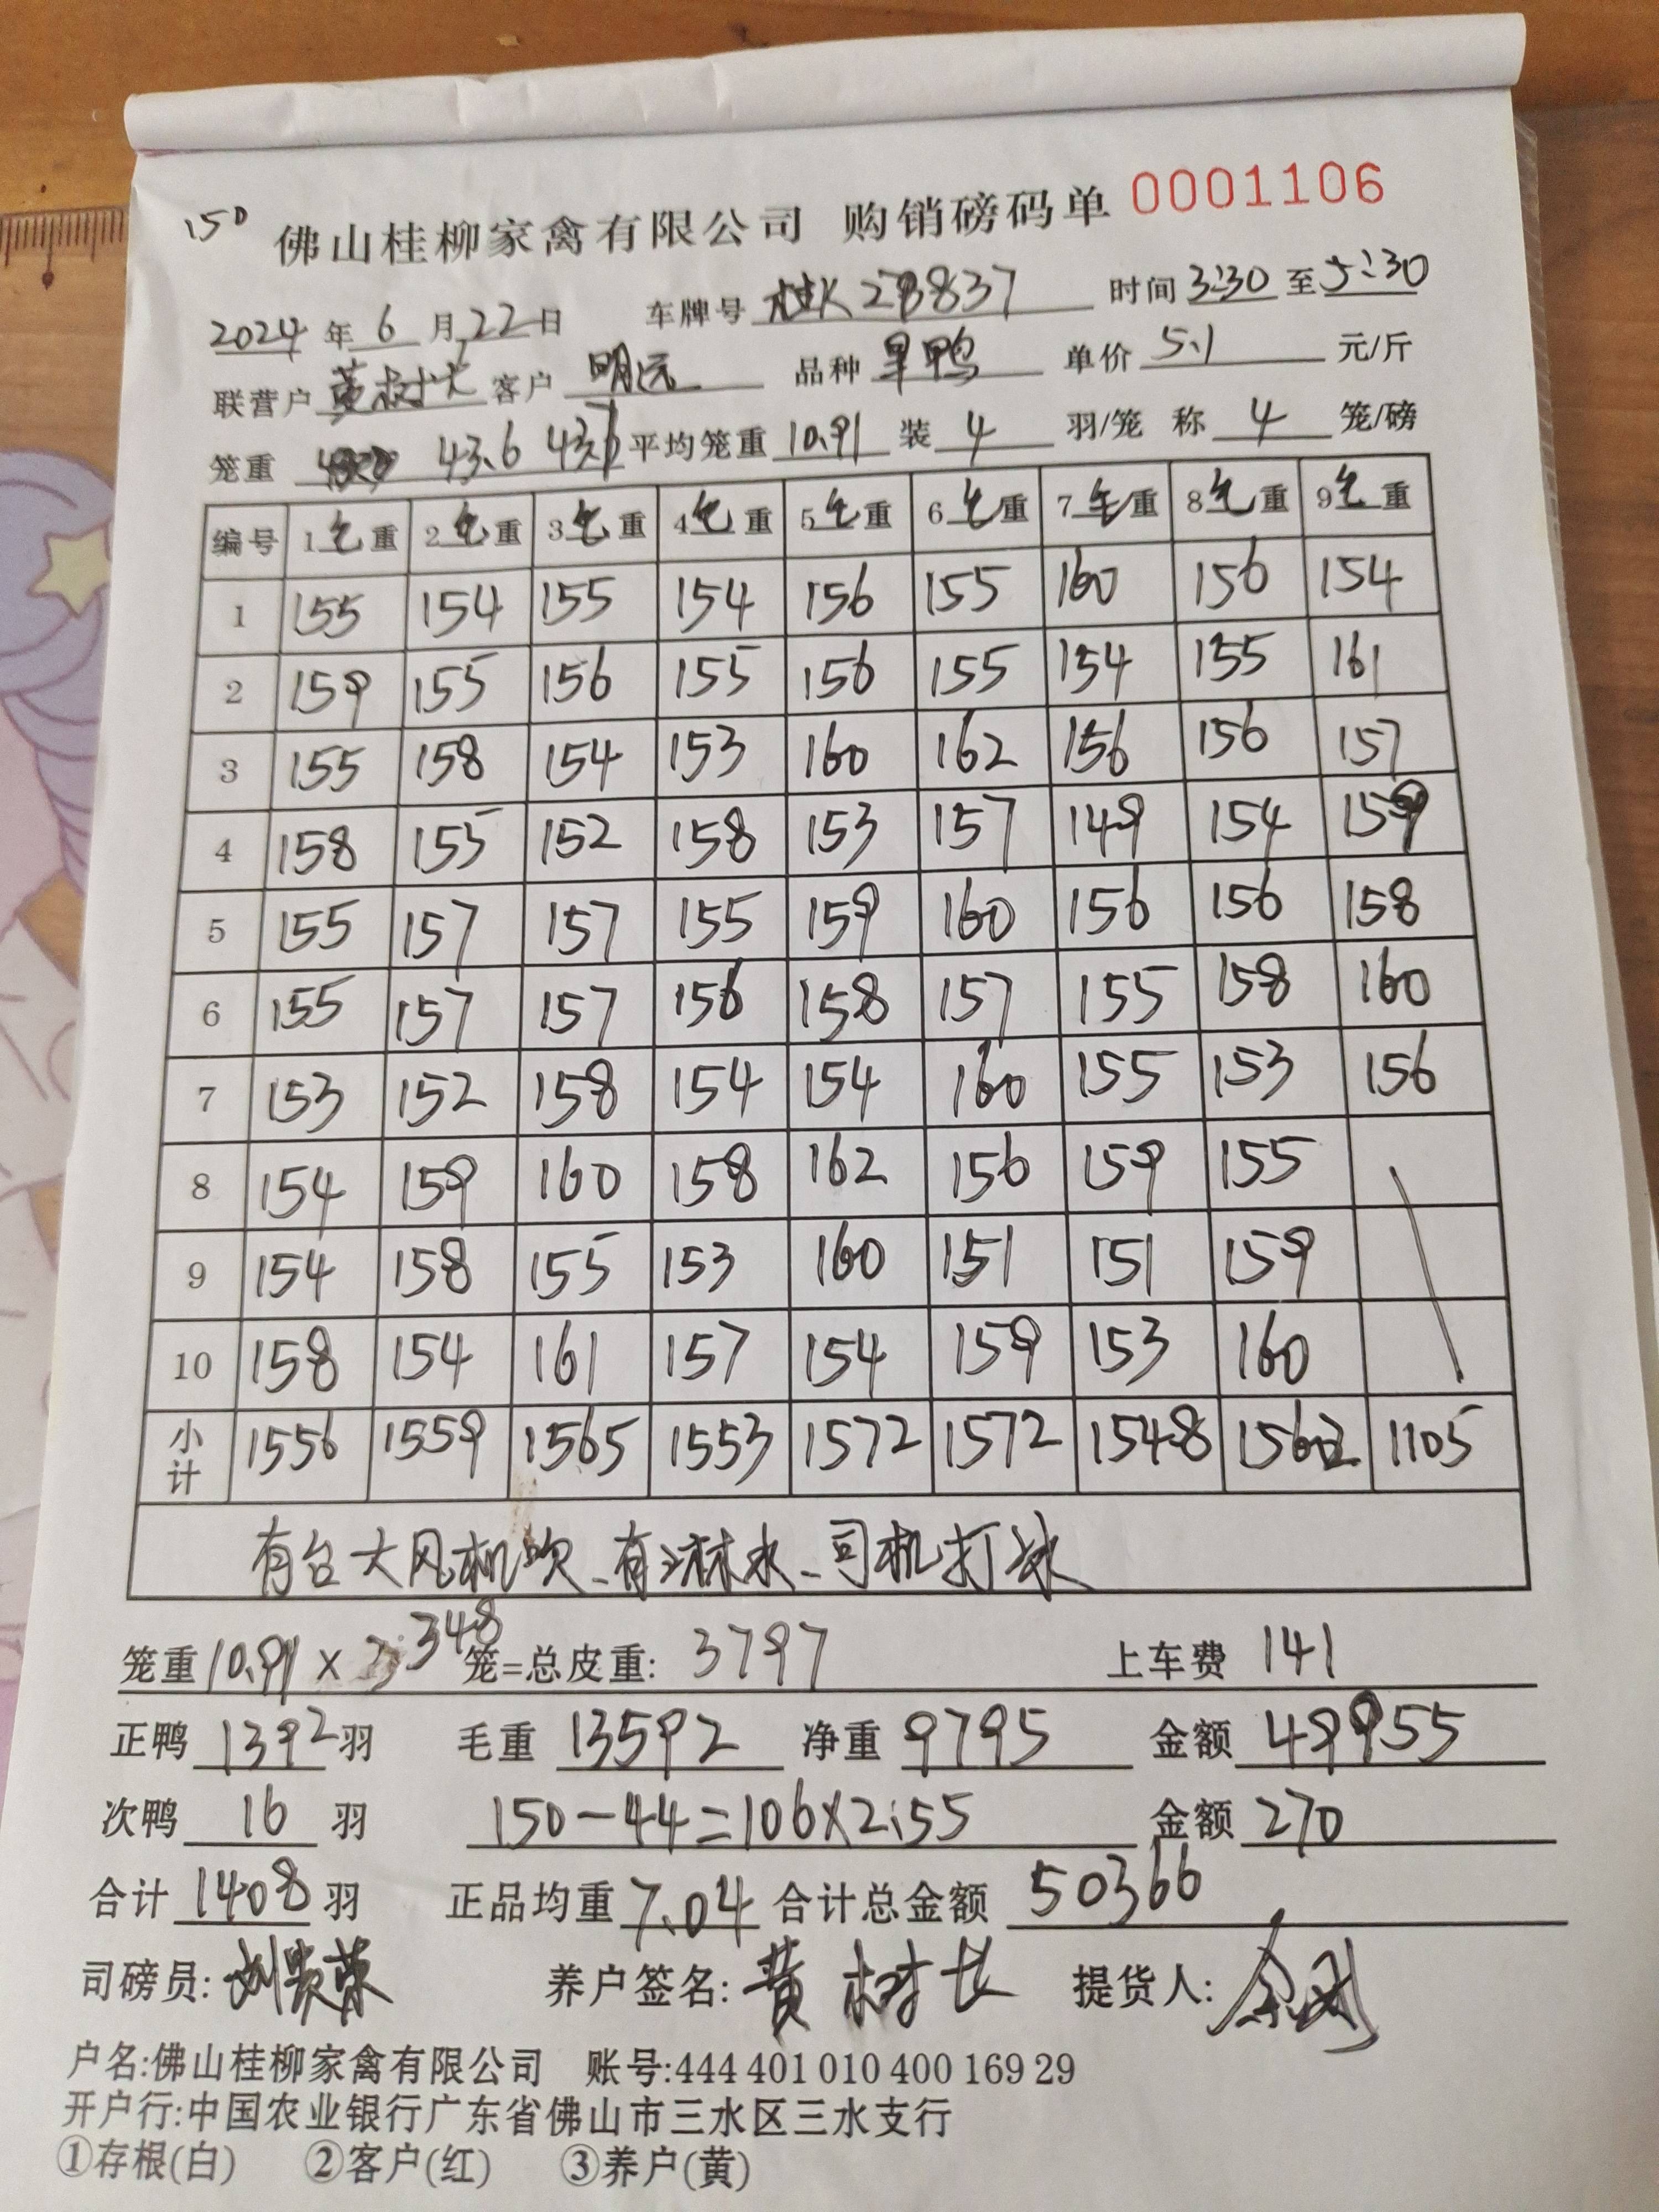 150
佛山桂柳家禽有限公司 购销磅码单 0001106
2024 年 6 月 22 日 车牌号 桂K28837 时间 3:30 至 5:30
联营户 黄树长 客户 明远 品种 旱鸭 单价 5.1 元/斤
笼重 43.6 43.7 平均笼重 10.91 装 4 羽/笼 称 4 笼/磅
编号 1毛重 2毛重 3毛重 4毛重 5毛重 6毛重 7毛重 8毛重 9毛重
1 155 154 155 154 156 155 160 156 154
2 159 155 156 155 156 155 154 155 161
3 155 158 154 153 160 162 156 156 157
4 158 155 152 158 153 157 149 154 159
5 155 157 157 155 159 160 156 156 158
6 155 157 157 156 158 157 155 158 160
7 153 152 158 154 154 160 155 153 156
8 154 159 160 158 162 156 159 155
9 154 158 155 153 160 151 151 159
10 158 154 161 157 154 159 153 160
小计 1556 1559 1565 1553 1572 1572 1548 1562 1105
有台大风机吹、有淋水、司机打冰
笼重 10.91 × 348 笼=总皮重: 3797 上车费 141
正鸭 1392 羽 毛重 13592 净重 9795 金额 49955
次鸭 16 羽 150-44=106×2.55 金额 270
合计 1408 羽 正品均重 7.04 合计总金额 50366
司磅员: 刘贵荣 养户签名: 黄树长 提货人:
户名:佛山桂柳家禽有限公司 账号:444 401 010 400 169 29
开户行:中国农业银行广东省佛山市三水区三水支行
①存根(白) ②客户(红) ③养户(黄)